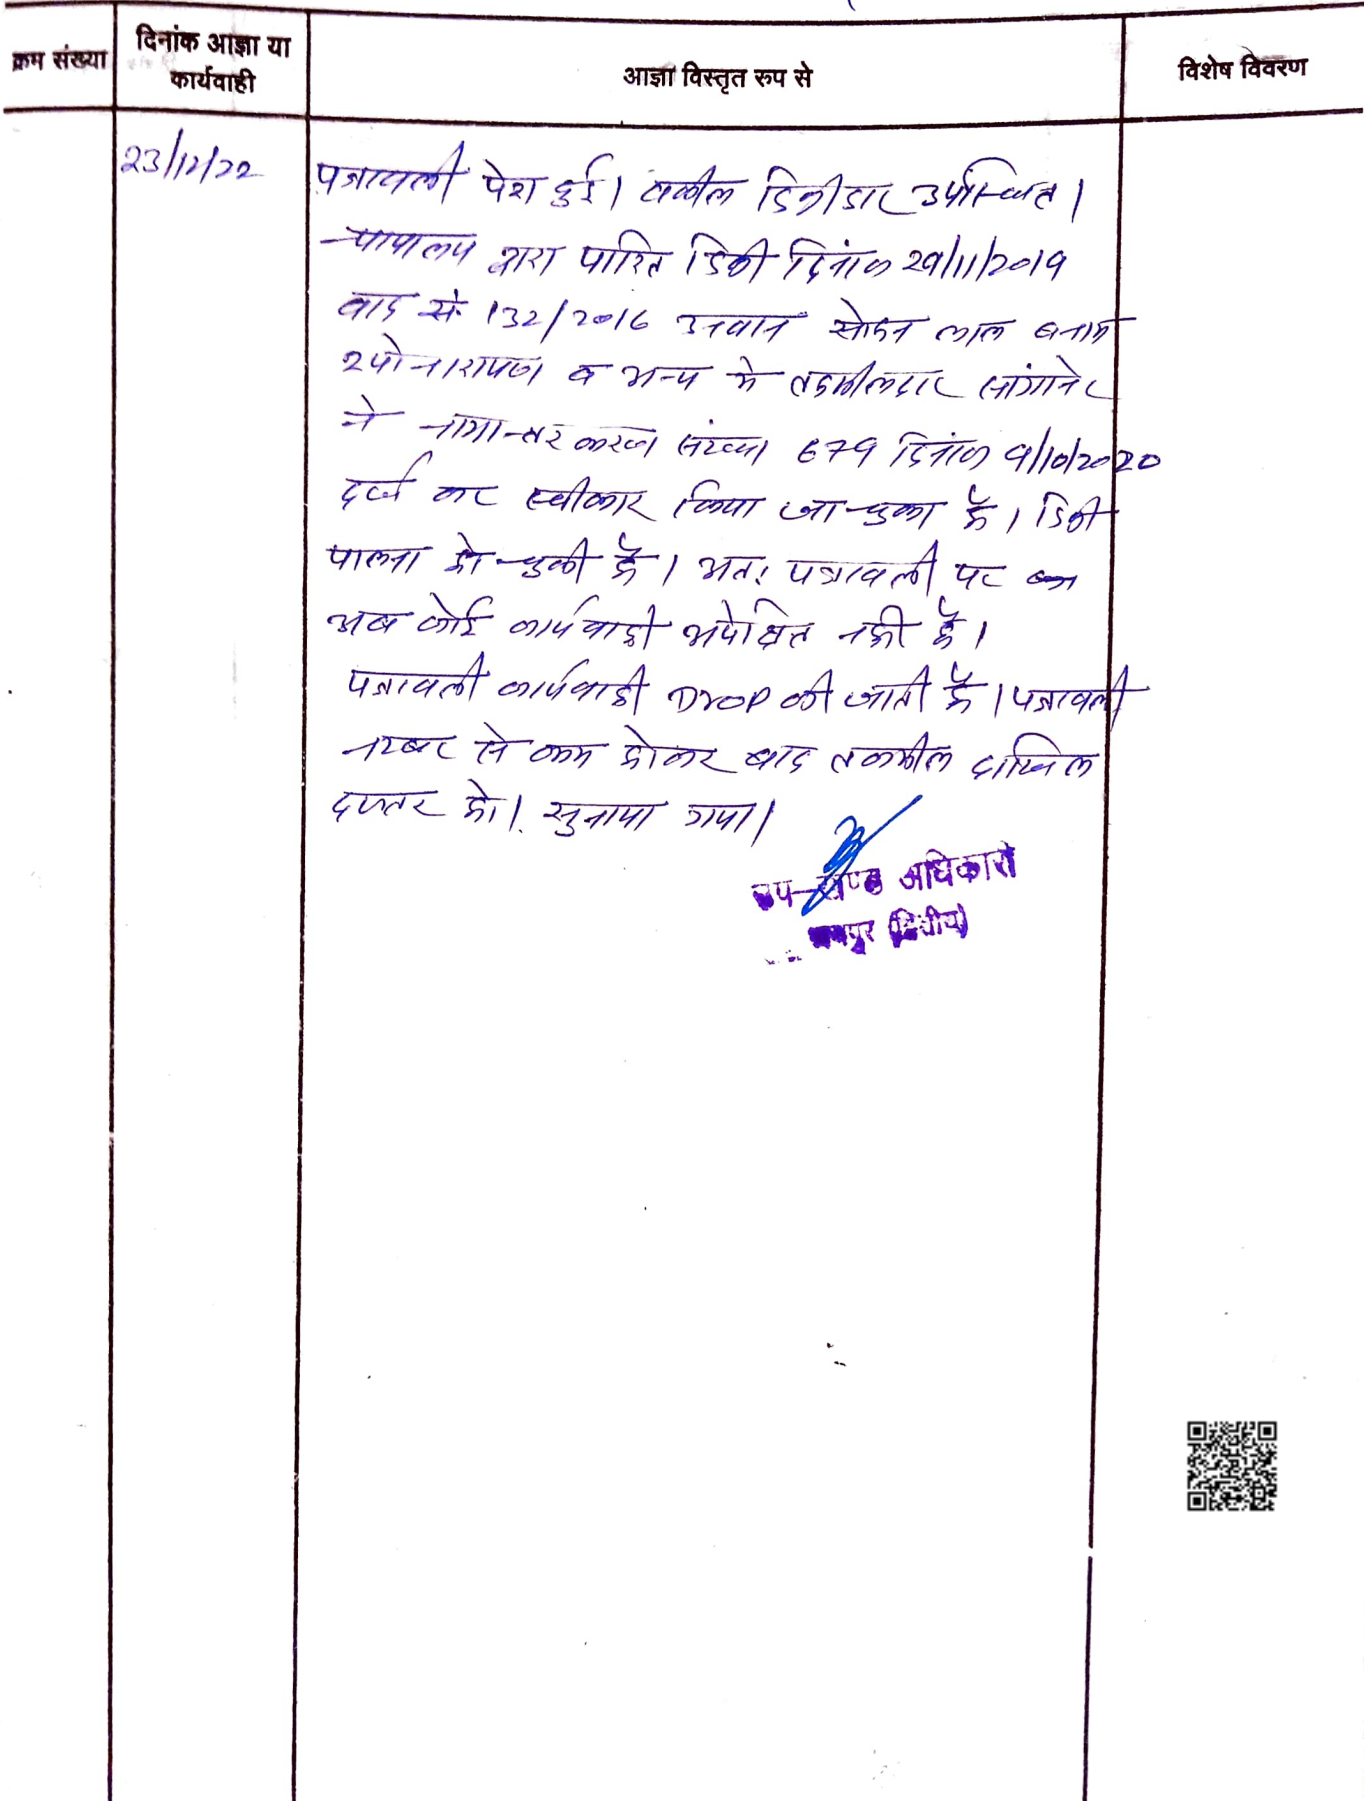 क्रम संख्या
दिनांक आज्ञा या
कार्यवाही
आज्ञा विस्तृत रुप से
विशेष विवरण
23/12/22
पत्रावली पेश हुई। वकील डिक्रीदार उपस्थित।
न्यायालय द्वारा पारित डिक्री दिनांक 29/11/2019
वाद सं. 132/2016 उनवान सोहन लाल बनाम
श्योनारायण व अन्य मे तहसीलदार सांगानेर
ने नामान्तरकरण संख्या 679 दिनांक 9/10/2020
दर्ज कर स्वीकार किया जा चुका है। डिक्री
पालना हो चुकी है। अतः पत्रावली पर
अब कोई कार्यवाही अपेक्षित नही है।
पत्रावली कार्यवाही Drop की जाती है। पत्रावली
नम्बर से कम होकर बाद तकमील दाखिल
दफ्तर हो। सुनाया गया।
उप-खण्ड अधिकारी
जयपुर (द्वितीय)